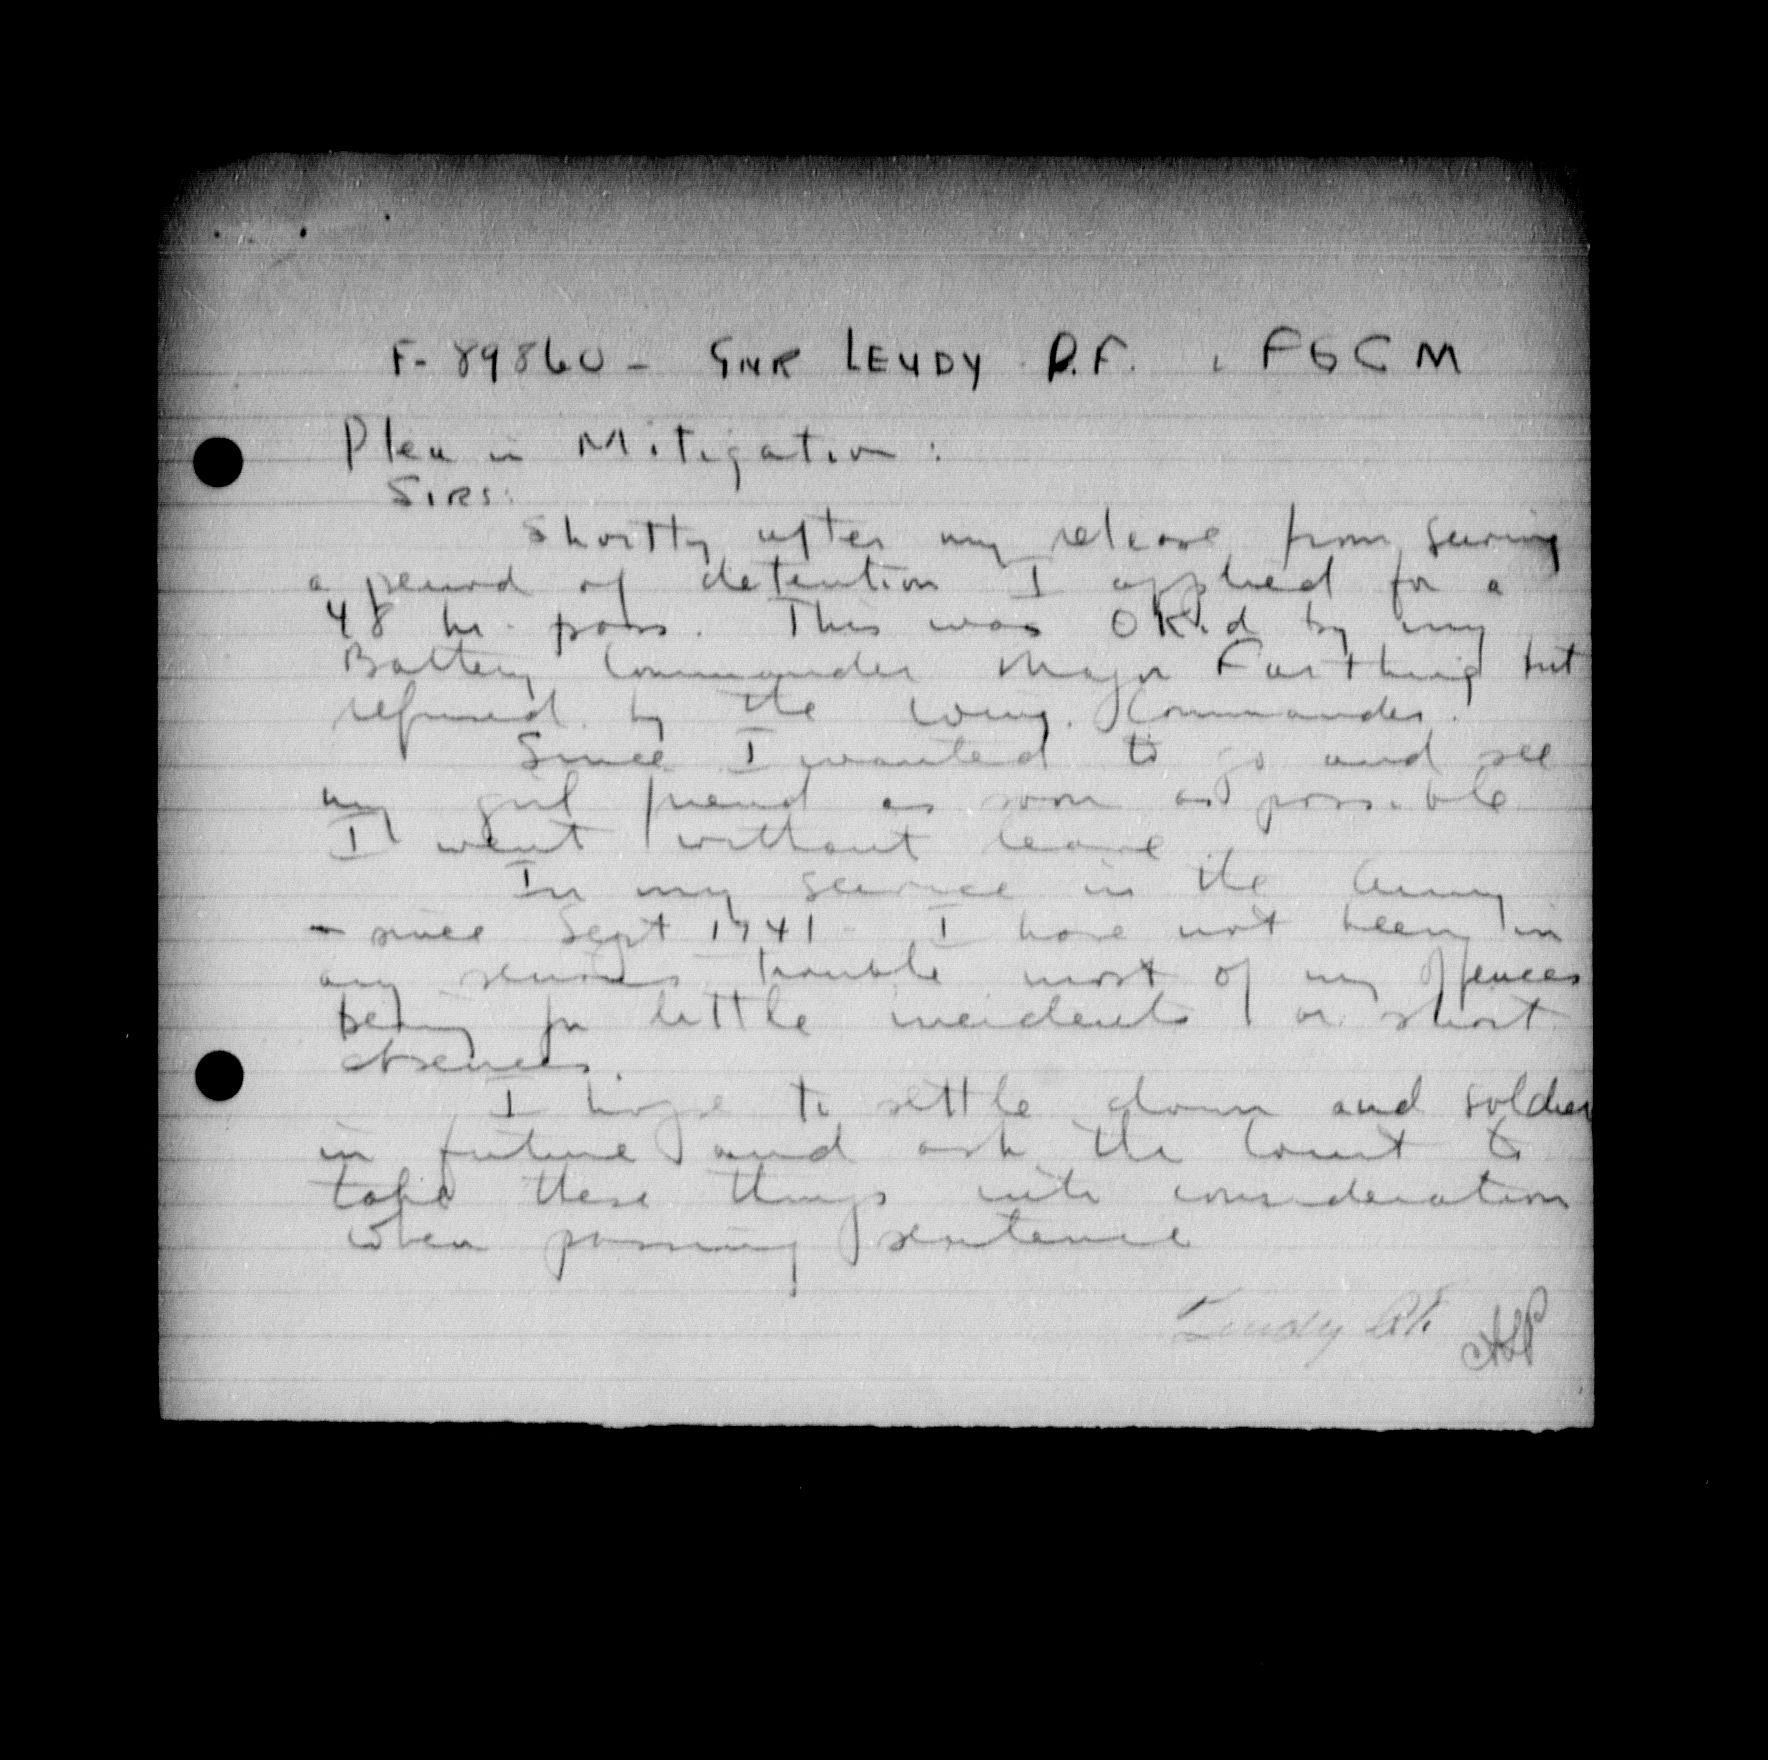 F-89860 - GNR LEUDY P.F. , FGCM
Plea in Mitigation :
SIRS:
Shortly after my release from serving
a period of detention I applied for a
48 hr. pass. This was OK'd by my
Battery Commander Major Farthing but
refused by the Wing Commander.
Since I wanted to go and see
my girl friend as soon as possible
I went without leave.
In my service in the Army
- since Sept 1941 - I have not been in
any serious trouble most of my offences
being for little incidents or short
absences.
I hope to settle down and soldier
in future and ask the Court to
take these things into consideration
when passing sentence
Leudy P.F.